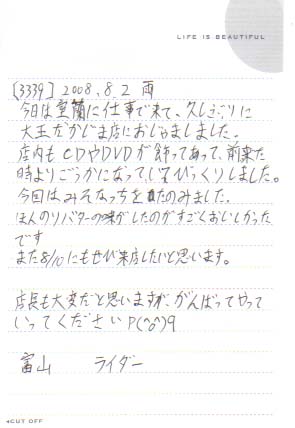 LIFE IS BEAUTIFUL
[3339] 2008.8.2 雨
今日は室蘭に仕事で来て、久しぶりに
大王だかじま店におじゃましました。
店内もCDやDVDが飾ってあって、前来た
時よりごうかになっていてびっくりしました。
今回はみそなっちをたのみました。
ほんのりバターの味がしたのがすごくおいしかった
です
また8/10にもぜひ来店したいと思います。
店長も大変だと思いますが、がんばってやって
いってください P(^o^)q
富山 ライダー
◂CUT OFF